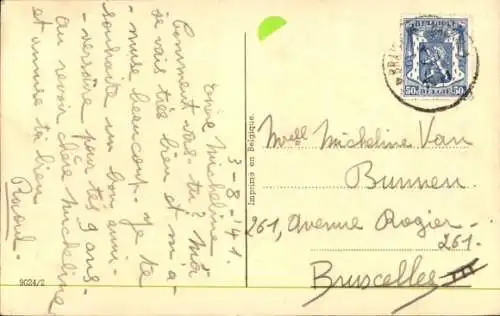 3-8-'41.
Chère Micheline
Comment vas-tu? Moi
je vais très bien et m'a-
muse beaucoup. Je te
souhaite un bon anni-
versaire pour tes 9 ans.
Au revoir chère Micheline
et amuse-toi bien
Imprimé en Belgique.
9024/2
BELGIE - BELGIQUE
50 50
Mell Micheline Van
Bunnen
261, Avenue Rogier
261.
Bruxelles III